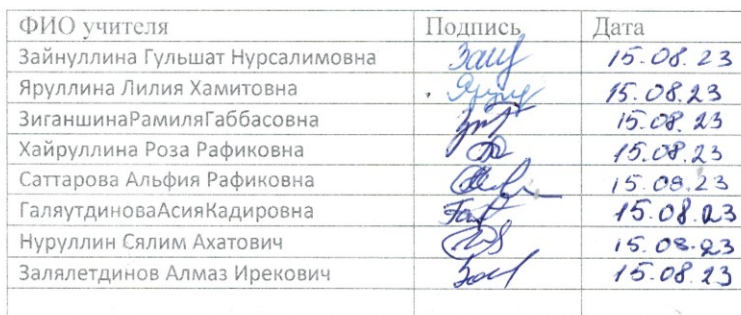 ФИО учителя Подпись Дата
Зайнуллина Гульшат Нурсалимовна Заий 15.08.23
Яруллина Лилия Хамитовна 15.08.23
ЗиганшинаРамиляГаббасовна 15.08.23
Хайруллина Роза Рафиковна 15.08.23
Саттарова Альфия Рафиковна 15.08.23
ГаляутдиноваАсияКадировна Гал 15.08.23
Нуруллин Сялим Ахатович 15.08.23
Залялетдинов Алмаз Ирекович 15.08.23